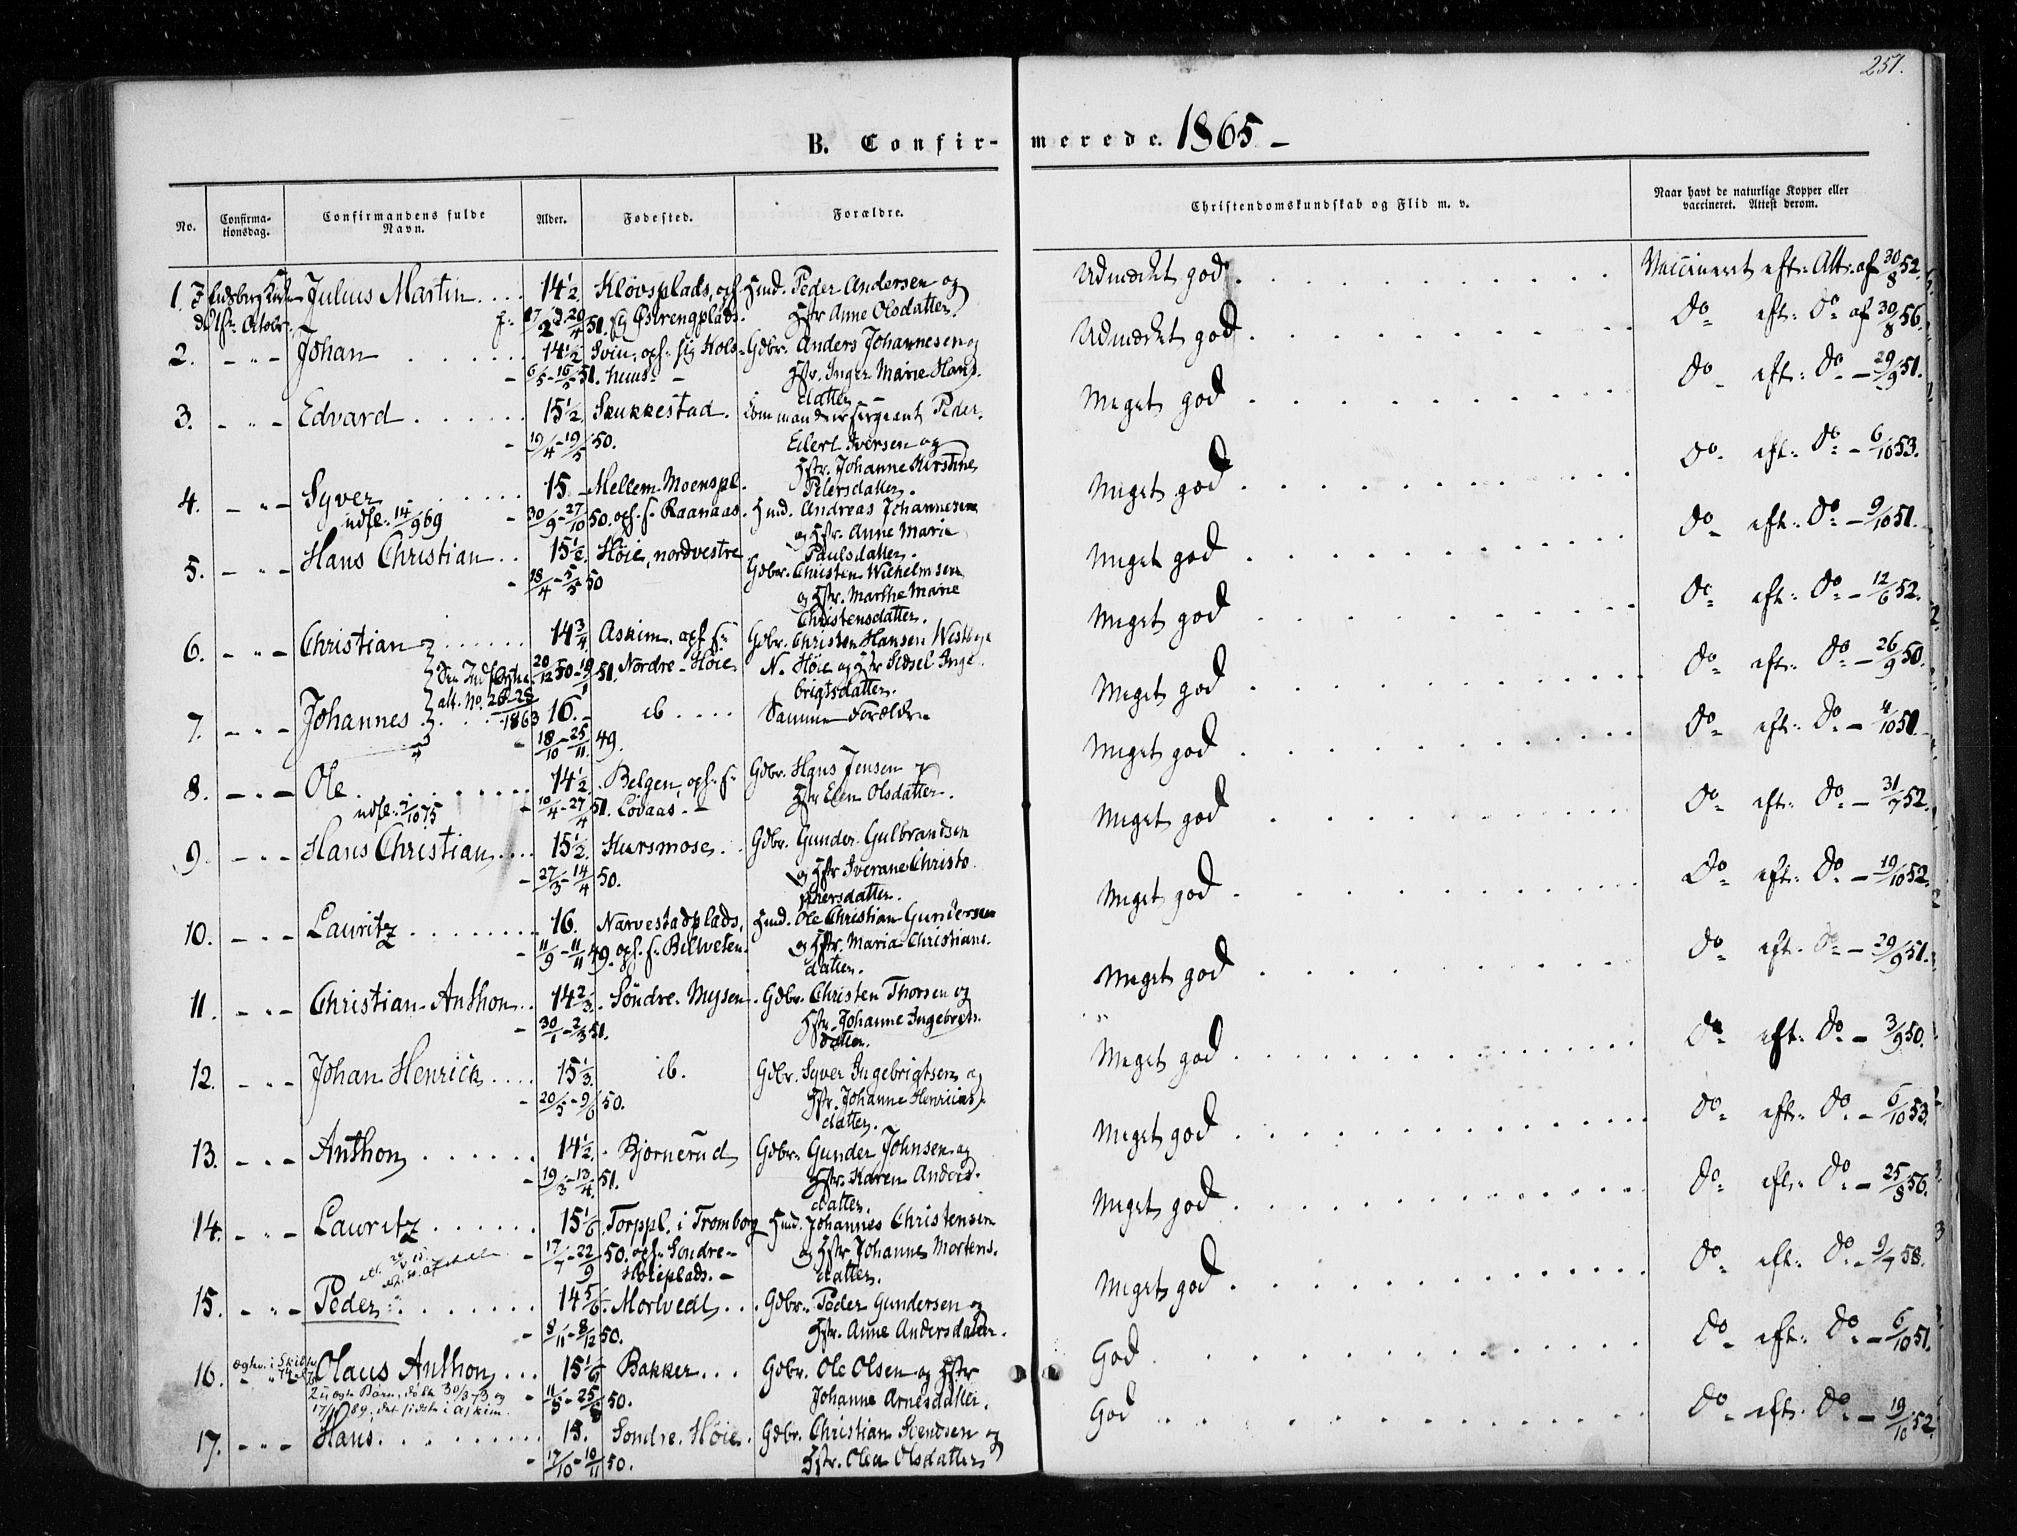 251.
B. Confir- merede. 1865. -
No. Confirma-tionsdag. Confirmandens fulde Navn. Alder. Fødested. Forældre. Christendomskundskab og Flid m. v. Naar havt de naturlige Kopper eller vaccineret. Attest derom.
1. Julius Martin 14 1/2 Kløvsplads, opf. Hmd. Peder Andersen og Udmærket god Vaccineret eft: Att: af 30/8 52.
d. 1ste Octobr. 20/4 51. Østrengplads. Hstr Anne Olsdatter
2. - " - Johan 14 1/2 Svin, opf: Gdbr. Anders Johannesen og Udmærket god Do eft: Do af 30/8 56.
6/5 - 16/5 51. huus - Hstr. Inger Marie Hans-
datter
3. - " - Edvard 15 1/2 Skukkestad. Commandeersergeant Peder Meget god Do eft: Do - 29/9 51.
19/4 - 19/5 50. Eilert Iversen og
Hstr. Johanne Kirstine
Petersdatter.
4. - " - Syver 15 - Mellem-Moenspl. Meget god Do eft: Do - 6/10 53.
udfl: 14/9 69 - 30/9 - 27/10 50. opf. f. Raanaas. Hmd. Andreas Johannesen
og Hstr. Anne Marie
Paulsdatter.
5. - " - Hans Christian 15 1/2 Høie, nordvestre Gdbr. Christen Wilhelmsen Meget god Do eft: Do - 9/10 51.
18/4 - 5/5 50 og Hstr. Marthe Marie
Christensdatter.
6. - " - Christian 14 3/4 Askim, opf. Gdbr. Christen Hansen Westbye Meget god Do eft: Do - 12/6 52.
20/12 50 - 19/1 51. Nordre-Høie N. Høie og Hstr Sidsel Inge-
brigtsdatter.
alt. No. 26-28 1863
7. - " - Johannes 16. - ib Samme Forældre Meget god Do eft: Do - 26/9 50.
18/10 - 25/11 49.
8. - " - Ole 14 1/2 Belgen, opf. f. Gdbr. Hans Jensen og Meget god Do eft: Do - 4/10 51.
udfl: 7/10 75 - 10/4 - 27/4 51. Løvaas - Hstr Elen Olsdatter.
9. - " - Hans Christian 15 1/2 Hursmose Gdbr. Gunder Gulbrandsen Meget god Do eft: Do - 31/7 52.
27/3 - 14/4 50. og Hstr Iverane Christo-
phersdatter.
10. - " - Lauritz 16. Narvestadplads, Hmd. Ole Christian Gundersen Meget god Do eft: Do - 19/10 52.
11/9 - 11/11 49. opf. f. Bilweten. og Hstr. Maria Christians-
datter.
11. - " - Christian Anthon 14 2/3 Søndre Mysen. Gdbr. Christen Thorsen og Meget god Do eft: Do - 29/9 51.
30/1 - 2/3 51. Hstr. Johanne Ingebrets-
datter.
12. - " - Johan Henrick 15 1/3. ib. Gdbr. Syver Ingebrigtsen og Meget god Do eft: Do - 3/9 50.
20/5 - 9/6 50. Hstr. Johanne Henricks-
datter.
13. - " - Anthon 14 1/2. Bjørnerud Gdbr. Gunder Johnsen og Meget god Do eft: Do - 6/10 53.
19/3 - 13/4 51. Hstr. Karen Anders-
datter.
14. - " - Lauritz 15 1/6 Torppl. i Tromborg Hmd. Johannes Christensen Meget god Do eft: Do - 25/8 56.
17/7 - 22/9 50. opf. Søndre- og Hstr Johanne Mortens-
Høieplads. - datter.
15. - " - Peder 14 5/6. Mortvedt Gdbr. Peder Gundersen og Meget god Do eft: Do - 9/7 58.
8/11 - 8/12 50. Hstr. Anne Andersdatter.
16. Olaus Anthon 15 1/6 Bakker Gdbr. Ole Olsen og Hstr God Do eft: Do - 6/10 51.
2 uægte Børn, døbte 30/3 73 og 50. Johanne Arnesdatter.
89, det sidste i Askim.
17. - " - Hans 15. Søndre Høie. Gdbr. Christian Svendsen og God Do eft: Do - 19/10 52.
17/10 - 10/11 50. Hstr. Olea Olsdatter